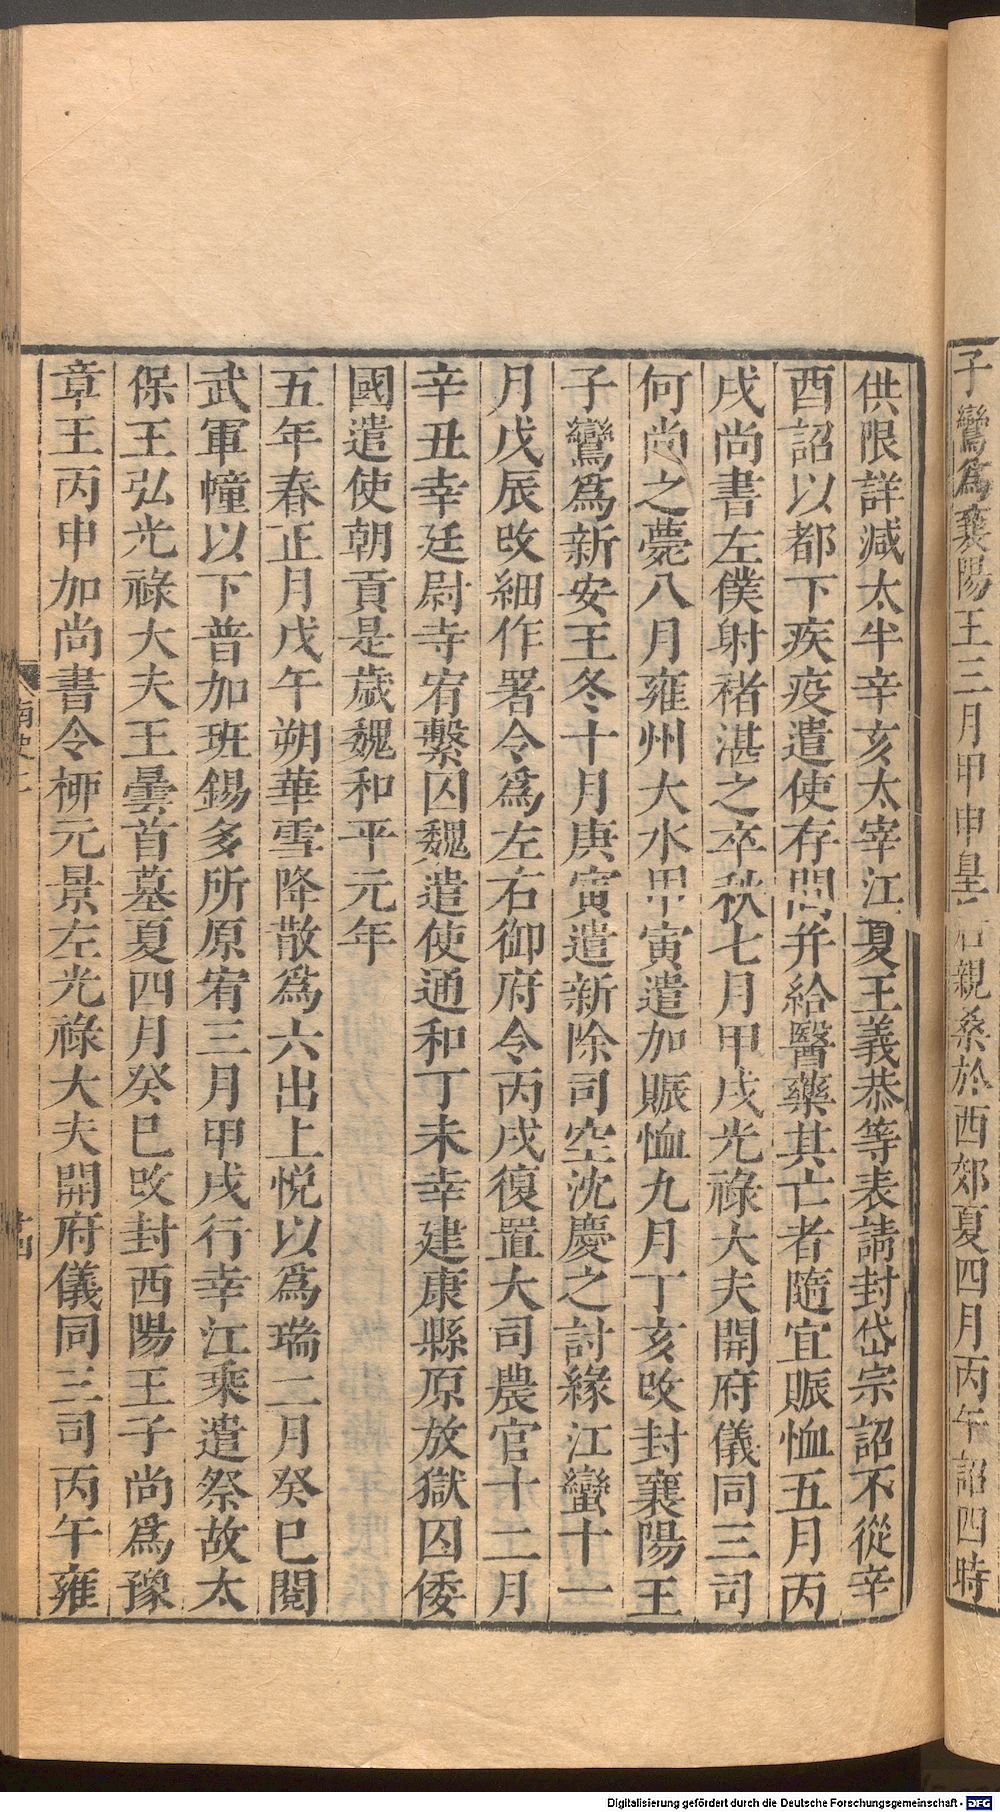 子鸞爲襄陽王三月甲申皇后親桑於西郊夏四月丙午詔四時
供限詳減太半辛亥太宰江夏王義恭等表請封岱宗詔不從辛
酉詔以都下疾疫遣使存問并給醫藥其亡者隨宜賑恤五月丙
戌尚書左僕射褚湛之卒秋七月甲戌光祿大夫開府儀同三司
何尚之薨八月雍州大水甲寅遣加賑恤九月丁亥改封襄陽王
子鸞爲新安王冬十月庚寅遣新除司空沈慶之討緣江蠻十一
月戊辰改細作署令爲左右御府令丙戌復置大司農官十二月
辛丑幸廷尉寺宥繫囚魏遣使通和丁未幸建康縣原放獄囚倭
國遣使朝貢是歲魏和平元年
五年春正月戊午朔華雪降散爲六出上悅以爲瑞二月癸巳閱
武軍幢以下普加班錫多所原宥三月甲戌行幸江乘遣祭故太
保王弘光祿大夫王曇首墓夏四月癸巳改封西陽王子尚爲豫
章王丙申加尚書令柳元景左光祿大夫開府儀同三司丙午雍
Digitalisierung gefördert durch die Deutsche Forschungsgemeinschaft - DFG